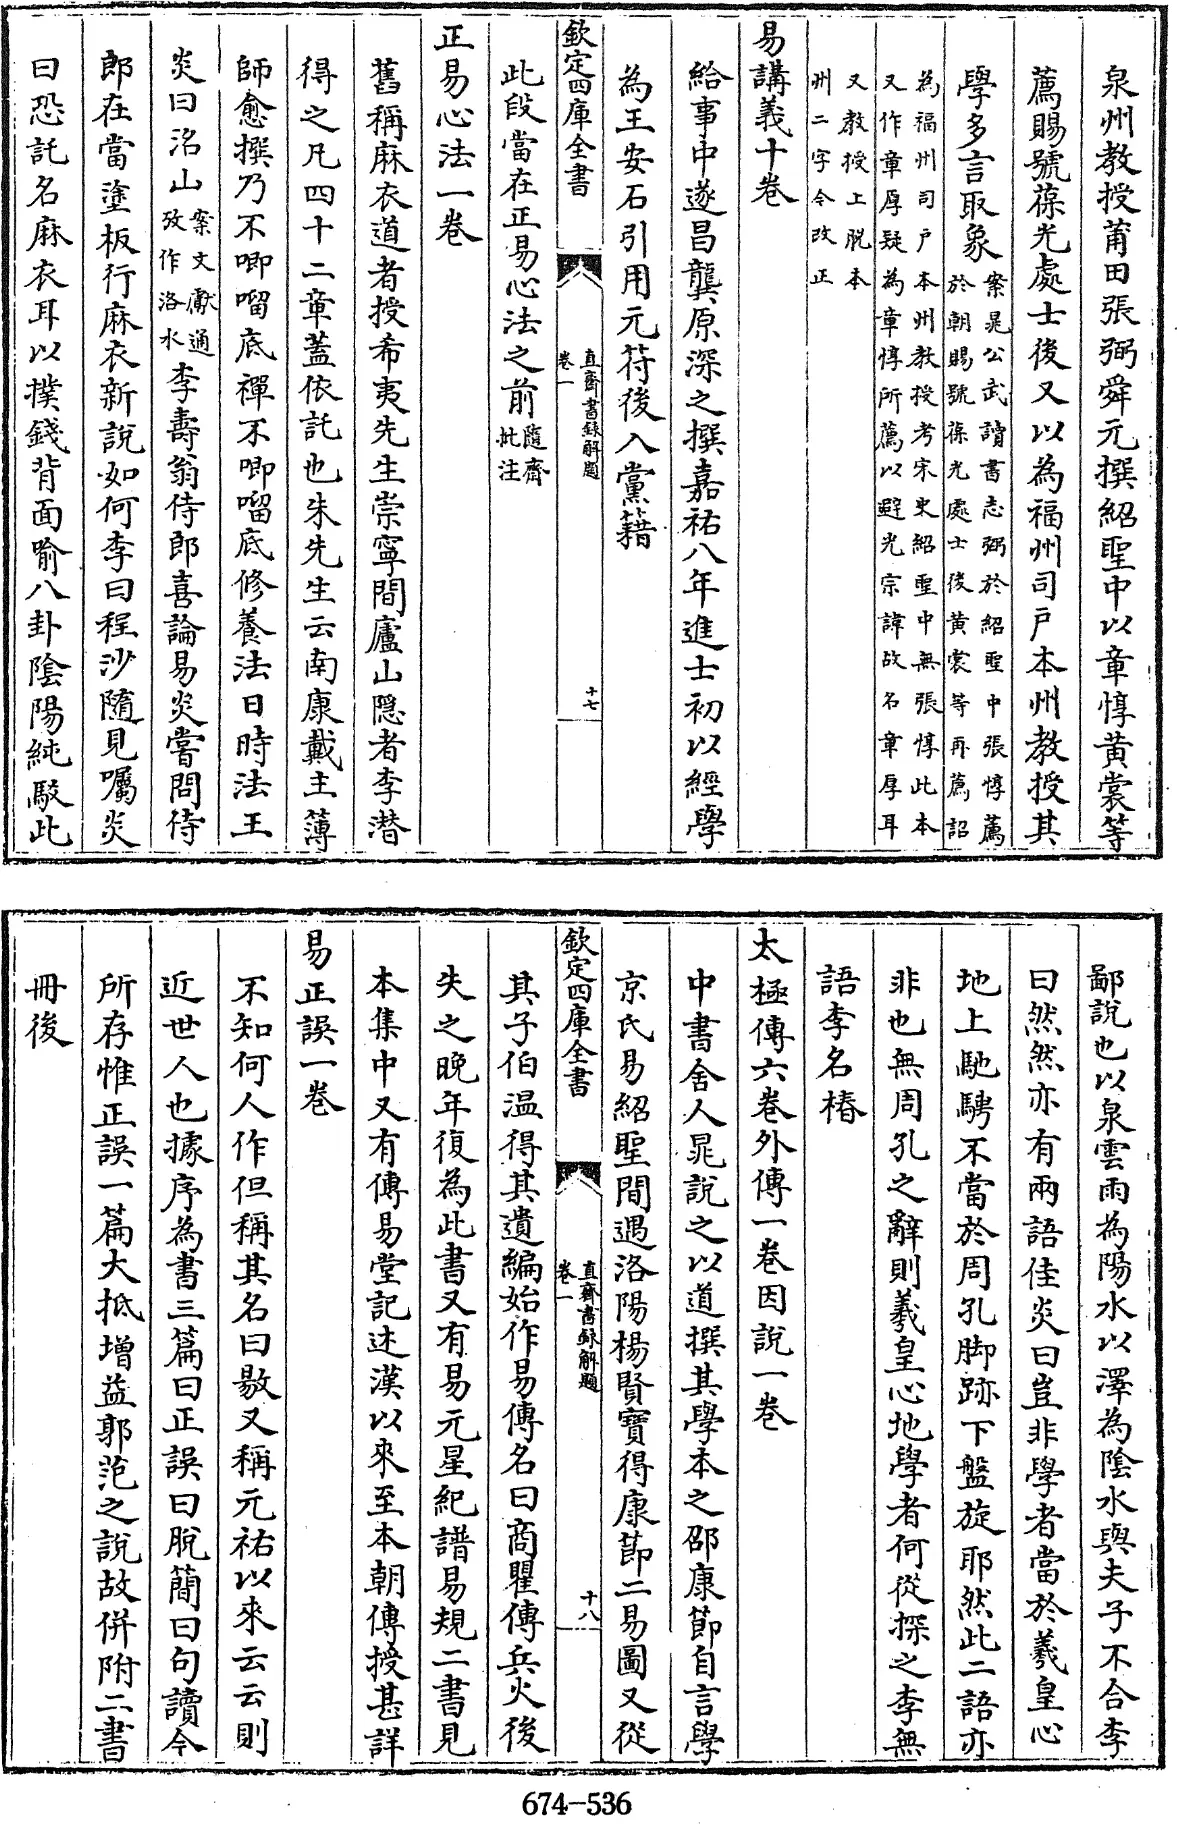 泉州教授莆田張弼舜元撰紹聖中以章惇黃裳等
薦賜號葆光處士後又以為福州司戶本州教授其
學多言取象
案晁公武讀書志弼於紹聖中張惇薦
於朝賜號葆光處士後黃裳等再薦詔
為福州司戶本州教授考宋史紹聖中無張惇此本
又作章厚疑為章惇所薦以避光宗諱故名章厚耳
又教授上脫本
州二字今改正
易講義十卷
給事中遂昌龔原深之撰嘉祐八年進士初以經學
為王安石引用元符後入黨籍
欽定四庫全書
直齋書錄解題
卷一
十七
此段當在正易心法之前
隨齋
批注
正易心法一卷
舊稱麻衣道者授希夷先生崇寧間廬山隱者李潛
得之凡四十二章蓋依託也朱先生云南康戴主簿
師愈撰乃不唧㗑底禪不唧㗑底修養法日時法王
炎曰洺山
案文獻通
攷作洛水
李壽翁侍郎喜論易炎嘗問侍
郎在當塗板行麻衣新說如何李曰程沙隨見囑炎
曰恐託名麻衣耳以撲錢背面喻八卦陰陽純駁此
鄙說也以泉雲雨為陽水以澤為陰水與夫子不合李
曰然然亦有兩語佳炎曰豈非學者當於羲皇心
地上馳騁不當於周孔脚跡下盤旋耶然此二語亦
非也無周孔之辭則羲皇心地學者何從探之李無
語李名椿
太極傳六卷外傳一卷因說一卷
中書舍人晁說之以道撰其學本之邵康節自言學
京氏易紹聖間遇洛陽楊賢寶得康節二易圖又從
欽定四庫全書
直齋書錄解題
卷一
十八
其子伯溫得其遺編始作易傳名曰商瞿傳兵火後
失之晚年復為此書又有易元星紀譜易規二書見
本集中又有傳易堂記述漢以來至本朝傳授甚詳
易正誤一卷
不知何人作但稱其名曰敭又稱元祐以來云云則
近世人也據序為書三篇曰正誤曰脫簡曰句讀今
所存惟正誤一篇大抵增益郭范之說故併附二書
冊後
674-536